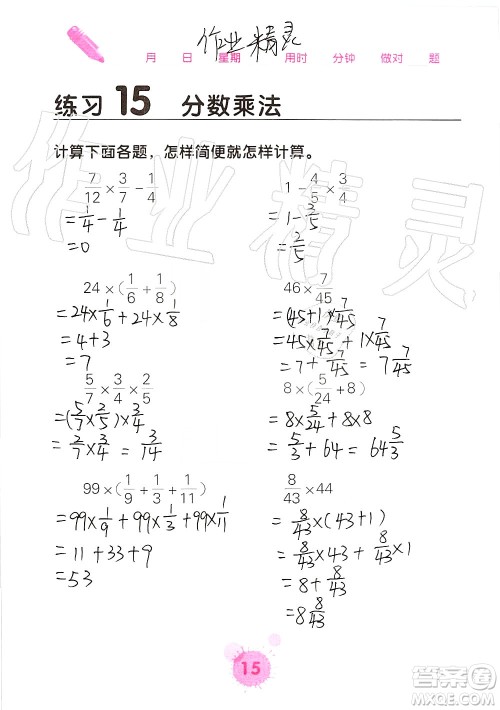 作业精灵
月 日 星期 用时 分钟 做对 题
练习 15 分数乘法
计算下面各题，怎样简便就怎样计算。
7/12 × 3/7 - 1/4
= 1/4 - 1/4
= 0
1 - 4/5 × 3/4
= 1 - 3/5
= 2/5
24 × (1/6 + 1/8)
= 24 × 1/6 + 24 × 1/8
= 4 + 3
= 7
46 × 7/45
= 45 + 1 × 7/45
= 45 × 7/45 + 1 × 7/45
= 7 + 7/45 = 7 7/45
5/7 × 3/4 × 2/5
= (5/7 × 2/5) × 3/4
= 2/7 × 3/4 = 3/14
8 × (5/24 + 8)
= 8 × 5/24 + 8 × 8
= 5/3 + 64 = 64 5/3
99 × (1/9 + 1/3 + 1/11)
= 99 × 1/9 + 99 × 1/3 + 99 × 1/11
= 11 + 33 + 9
= 53
8/43 × 44
= 8/43 × (43 + 1)
= 8/43 × 43 + 8/43 × 1
= 8 + 8/43
= 8 8/43
15
作业精灵
答案圈
MXQE.COM